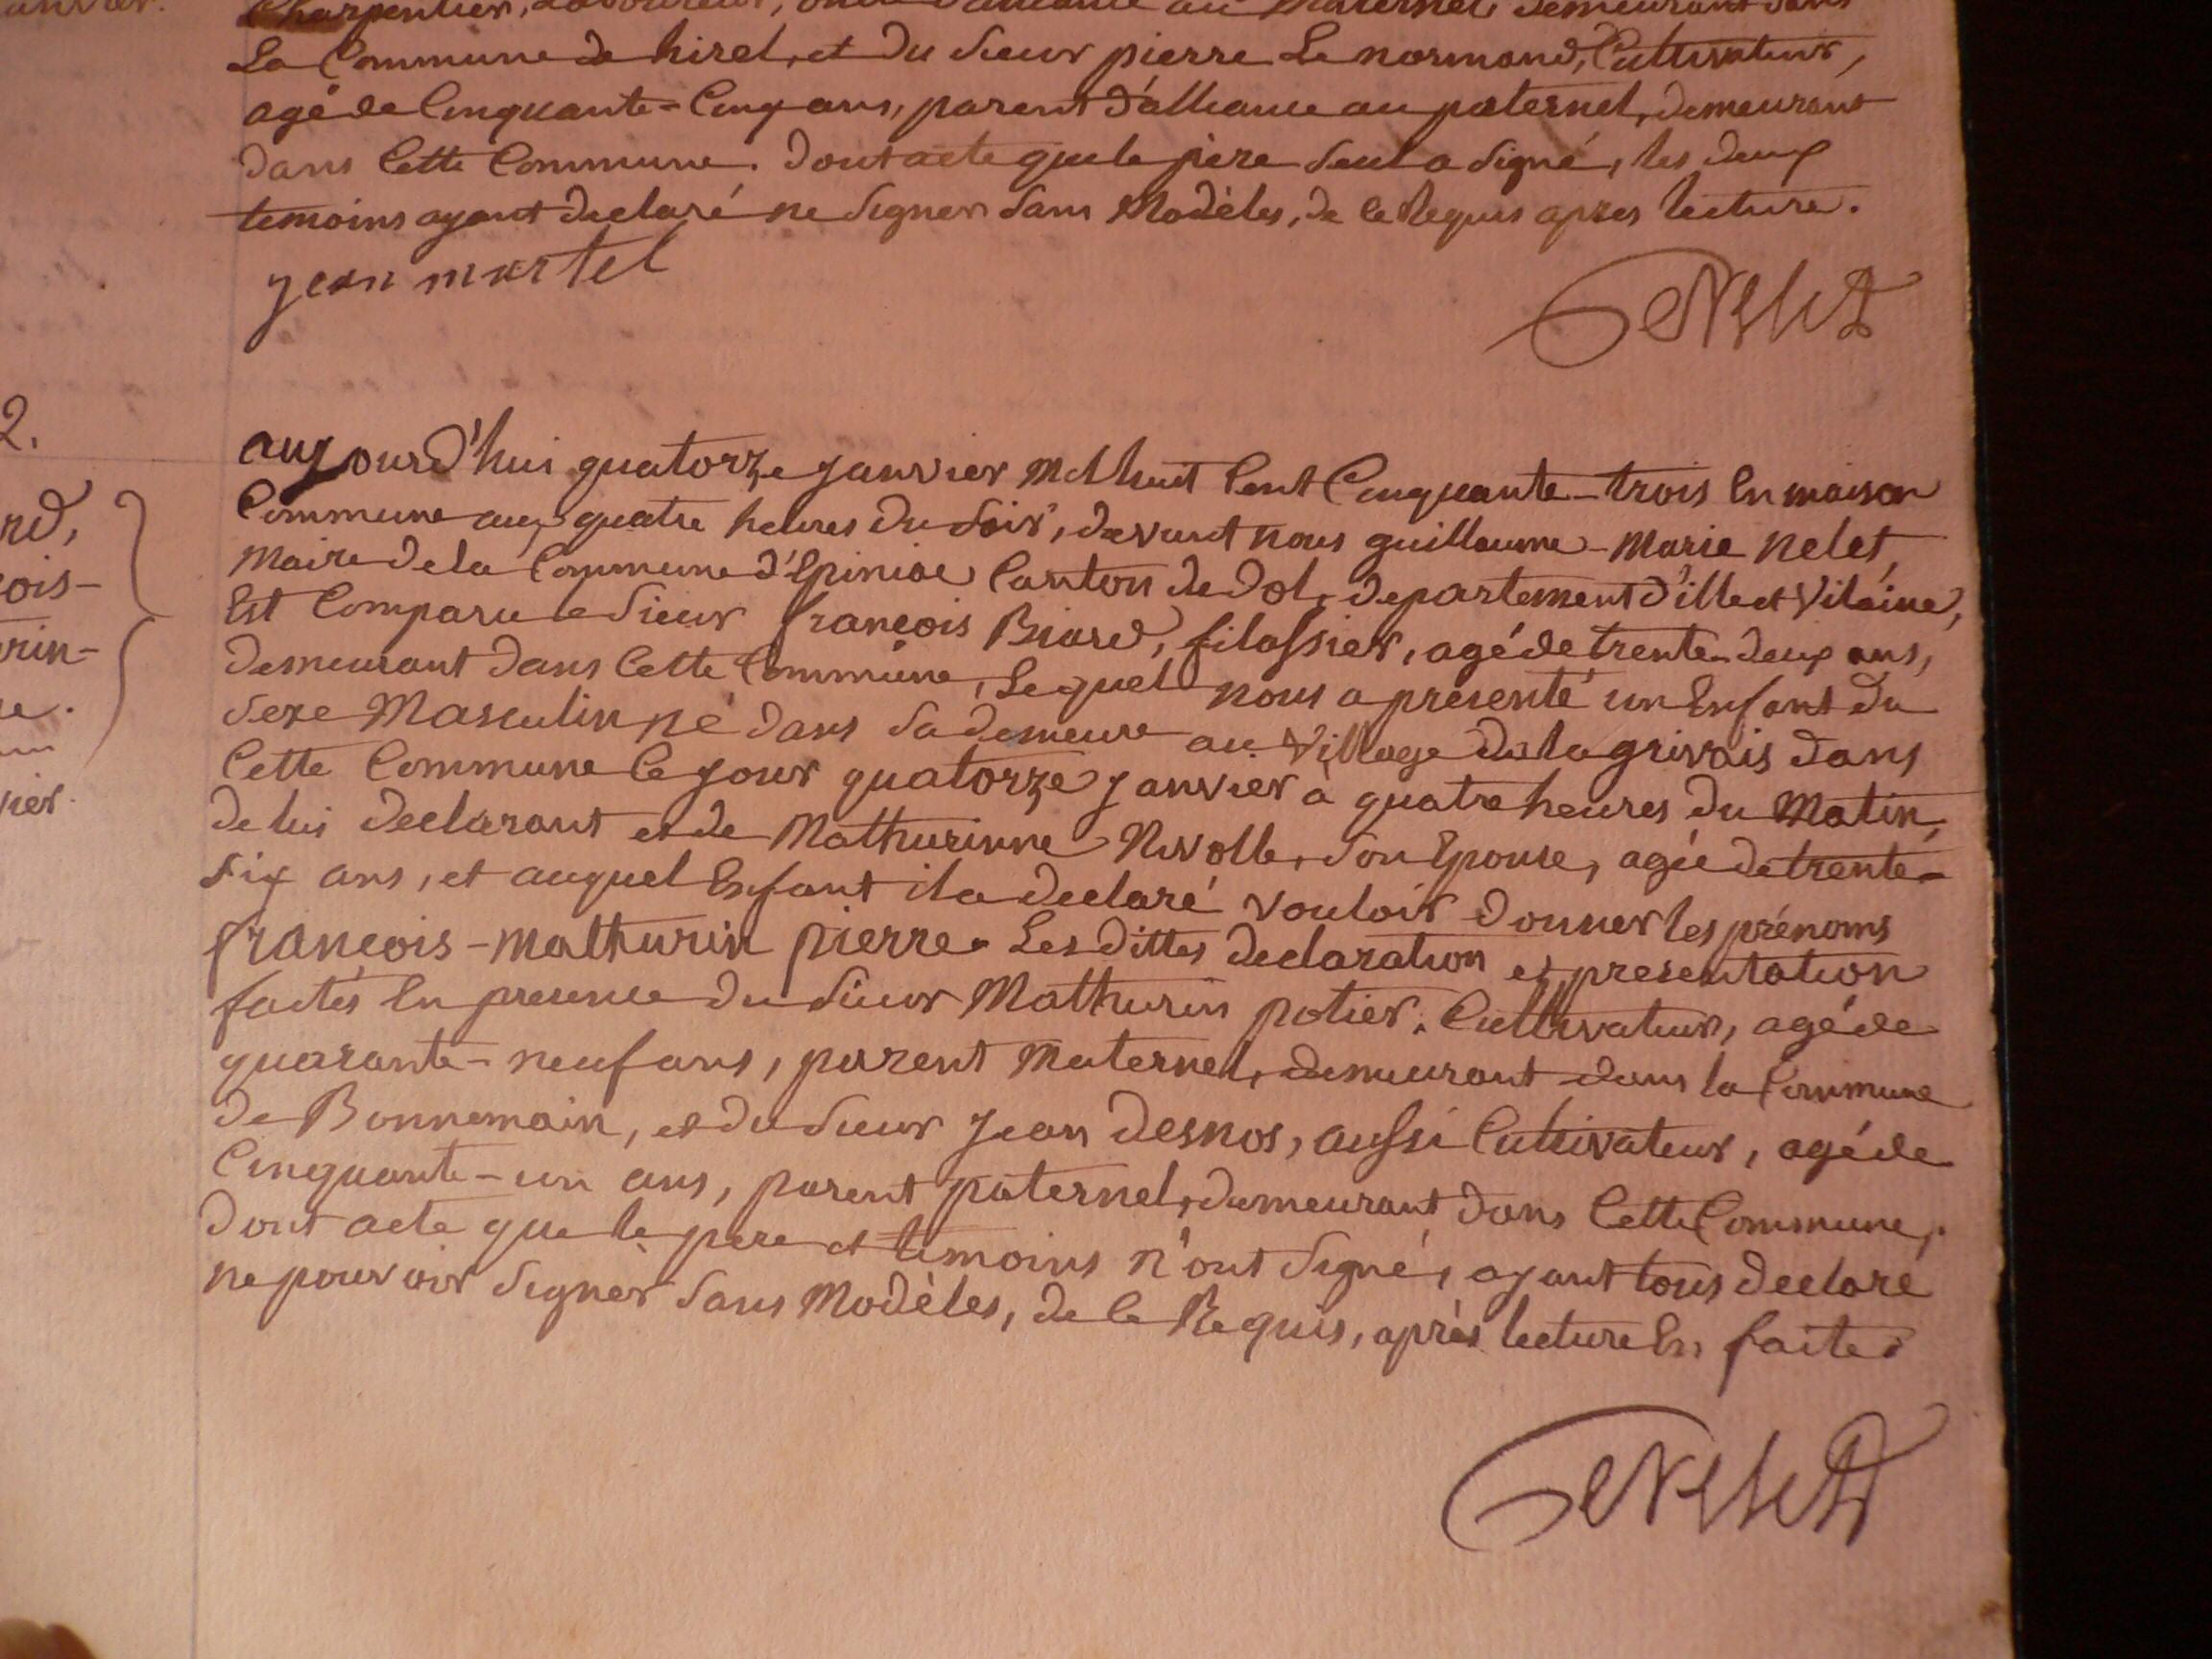 anvier.
Charpentier, Laboureur, oncle d'alliance au maternel, demeurant dans
La Commune de hirel, et du Sieur pierre Le normand, Cultivateur,
agé de Cinquante=Cinq ans, parent d'alliance au paternel, demeurant
dans Cette Commune. Dont acte que le père Seul a Signé, les deux
temoins ayant declaré ne Signer Sans Modèles, de ce Requis apres lecture.
jean martel
Nelet
2.
aujourd'hui quatorze janvier Mil huit Cent Cinquante-trois En maison
Commune aux quatre heures du Soir, devant nous guillaume-Marie Nelet,
Maire de la Commune d'Epiniac Canton de Dol, departement d'ille et Vilaine,
Est Comparu le Sieur françois Biard, filassier, agé de trente-deux ans,
demeurant dans Cette Commune, Lequel nous a presenté un Enfant du
Sexe Masculin né dans Sa demeure au Village de la grivais dans
Cette Commune Ce jour quatorze janvier à quatre heures du Matin,
de lui declarant et de Mathurinne Nivolle, Son Epouse, agée de trente-
Six ans, et auquel Enfant il a declaré vouloir donner les prénoms
françois-mathurin pierre. Les dittes declaration et presentation
faites En presence du Sieur Mathurin potier, Cultivateur, agé de
quarante-neuf ans, parent Maternel, demeurant dans la Commune
de Bonnemain, et du Sieur Jean Desnos, aussi Cultivateur, agé de
Cinquante-un ans, parent paternel, demeurant dans Cette Commune,
Dont acte que le père et temoins n'ont Signé, ayant tous declaré
ne pouvoir Signer Sans Modèles, de Ce Requis, après lecture En faite.
Nelet
rd,
ois-
rin-
e.
vier.